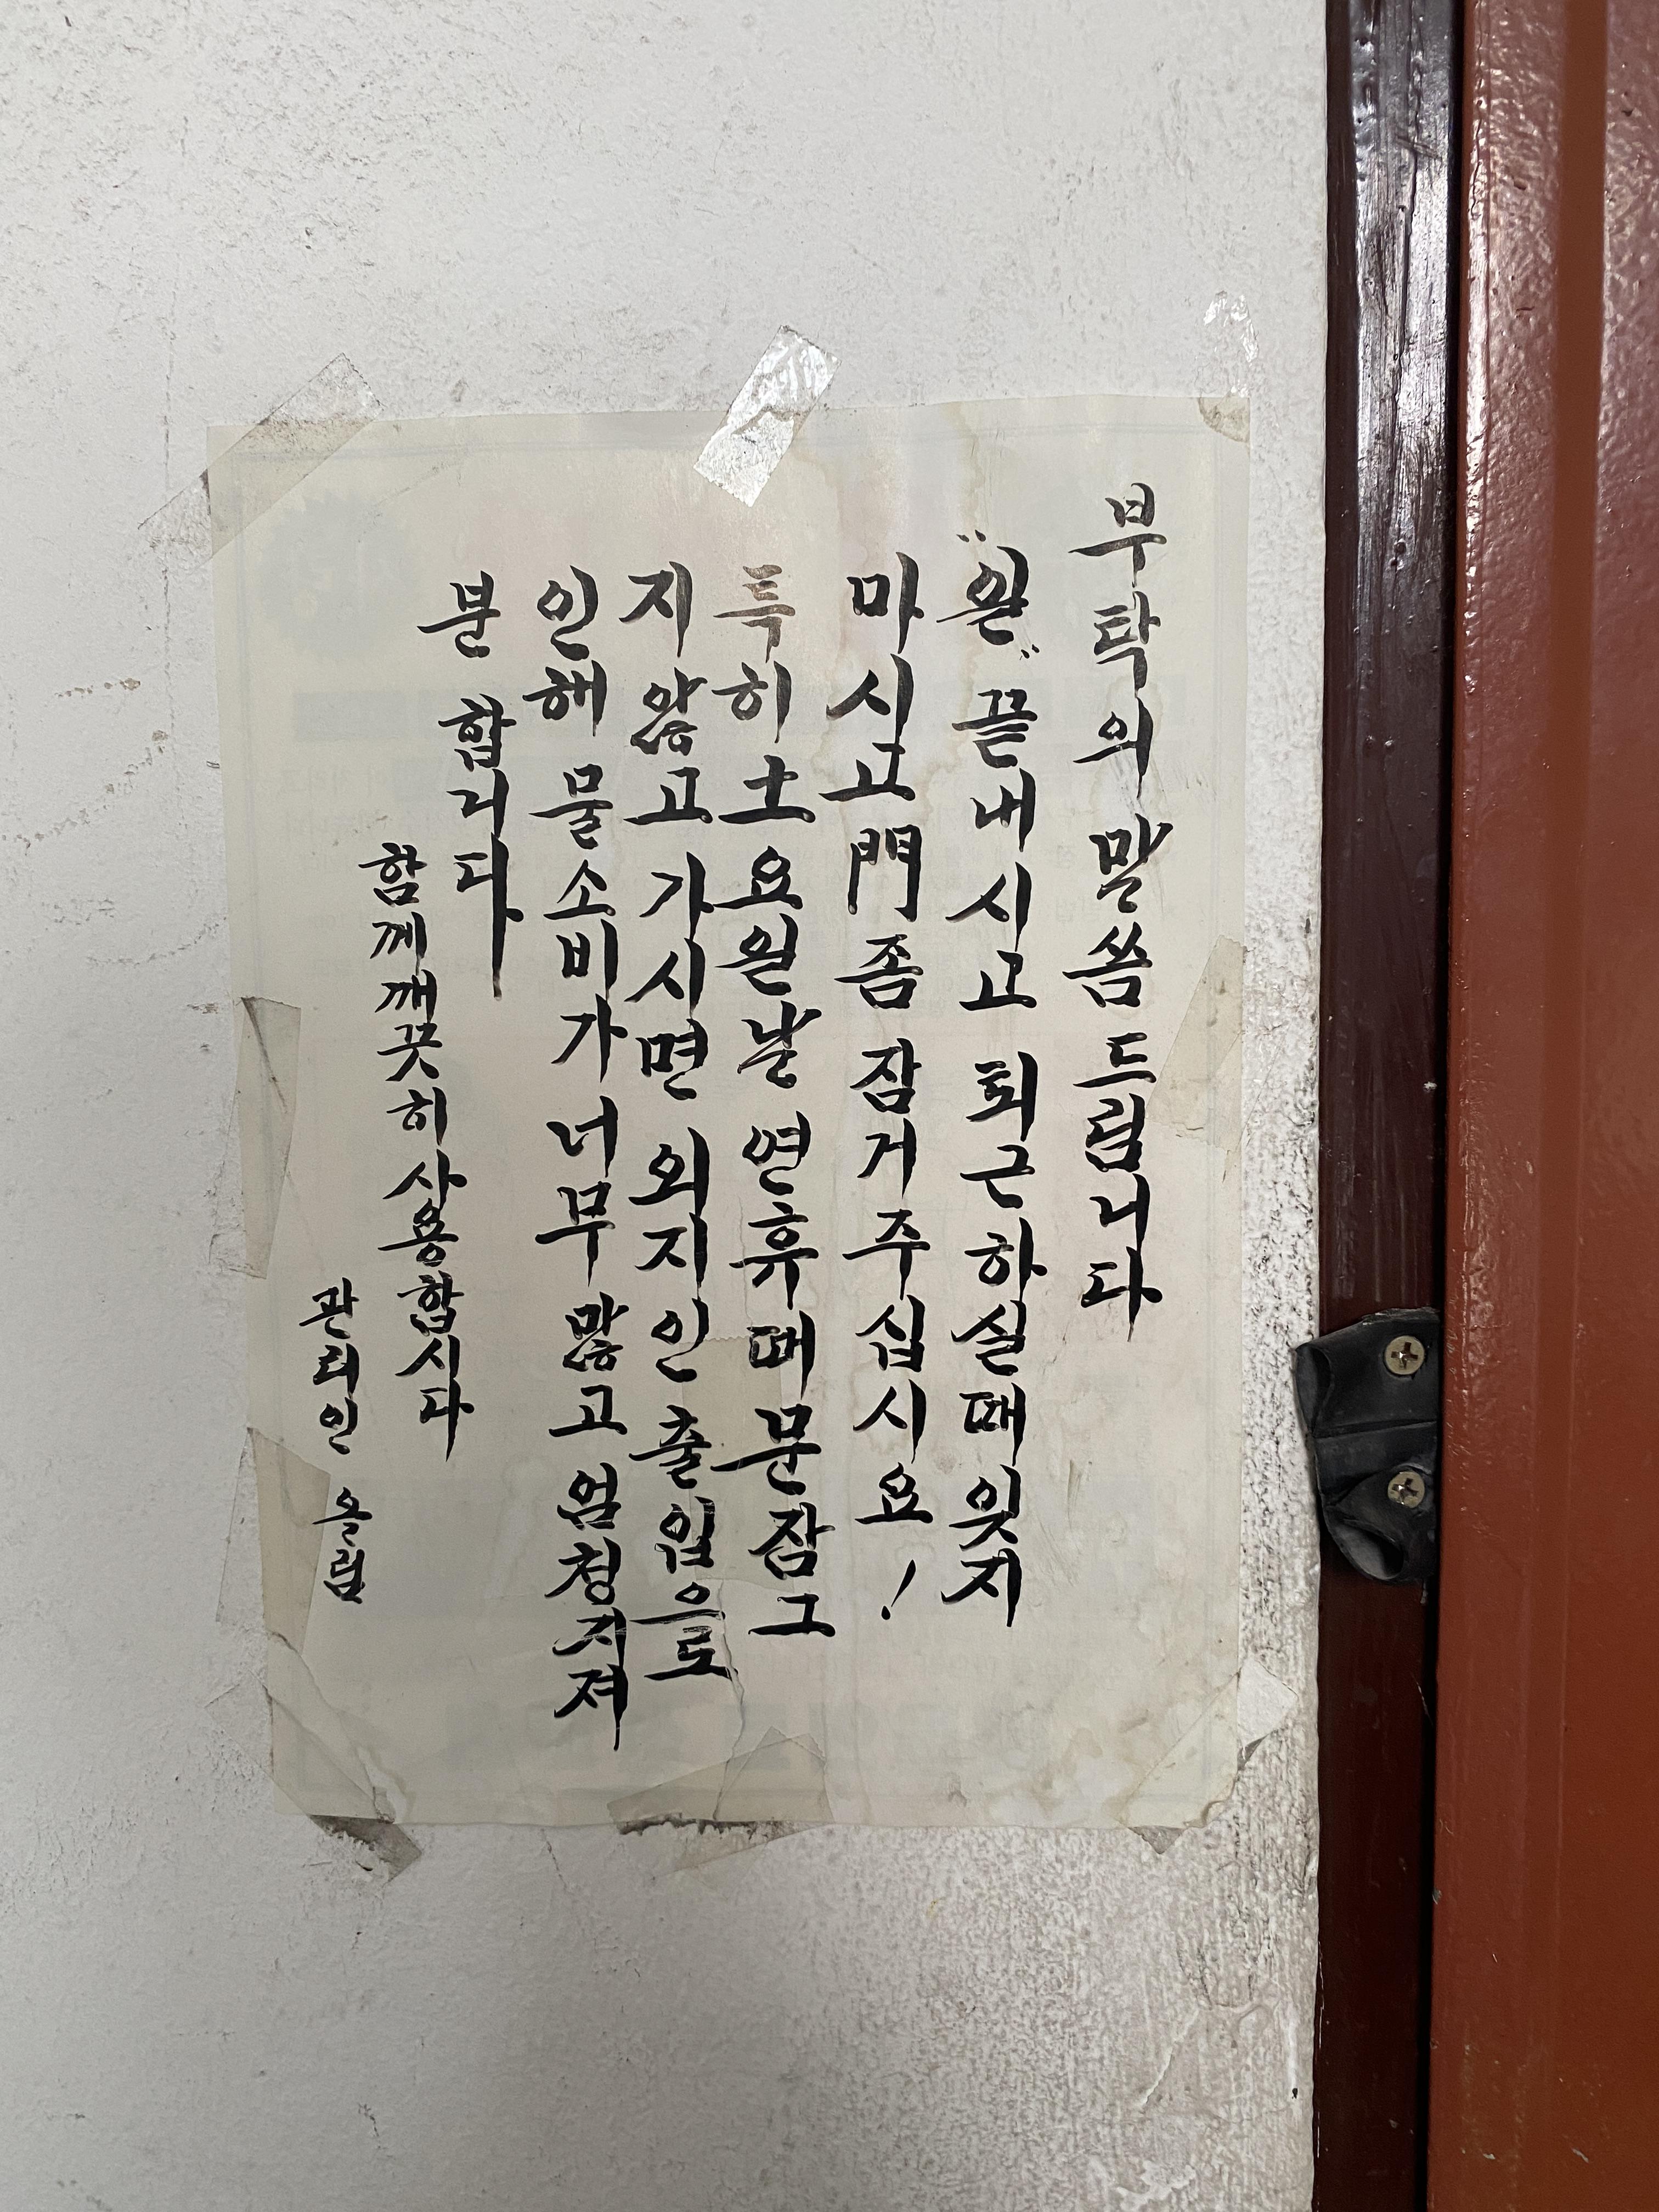 부탁의 말씀 드립니다
"일" 끝내시고 퇴근하실때 잊지
마시고 門 좀 잠거주십시요!
특히 土요일날 연휴때 문잠그
지 않고 가시면 외지인 출입으로
인해 물소비가 너무 많고 엄청지져
분 합니다
함께 깨끗히 사용합시다
관리인 올림